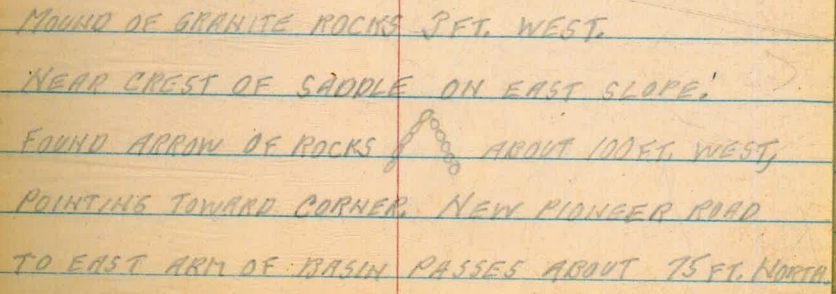 MOUND OF GRANITE ROCKS 3 FT. WEST.
NEAR CREST OF SADDLE ON EAST SLOPE.
FOUND ARROW OF ROCKS ABOUT 100 FT. WEST,
POINTING TOWARD CORNER. NEW PIONEER ROAD
TO EAST ARM OF BASIN PASSES ABOUT 75 FT. NORTH.